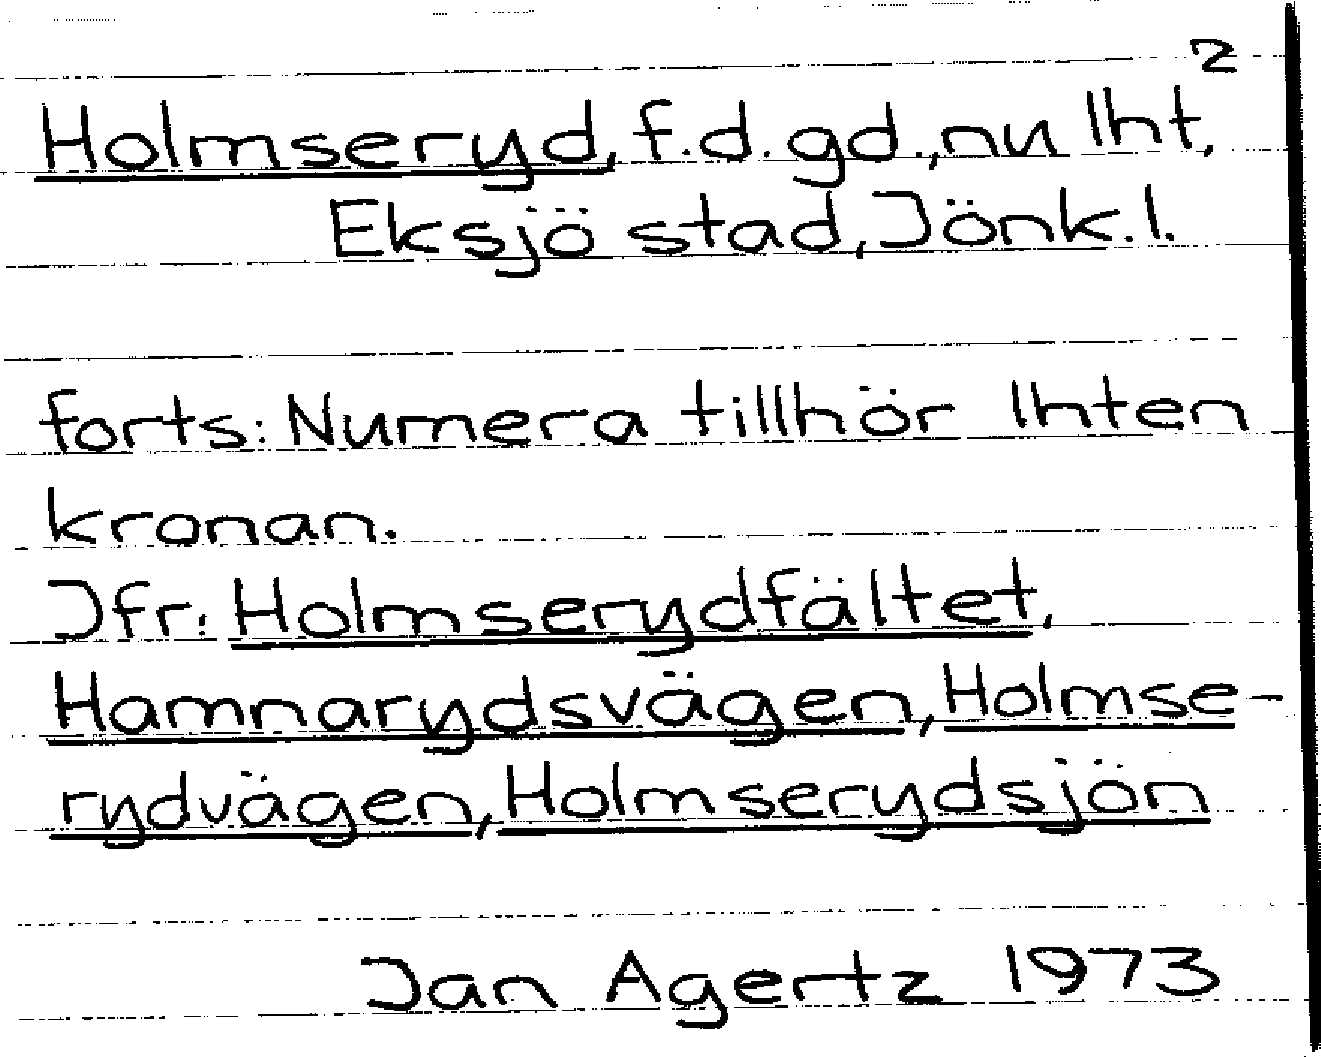 2
Holmseryd, f.d. gd., nu lht,
Eksjö stad, Jönk. l.
forts: Numera tillhör lhten
kronan.
Jfr: Holmserydfältet,
Hamnarydsvägen, Holmse-
rydvägen, Holmserydsjön
Jan Agertz 1973